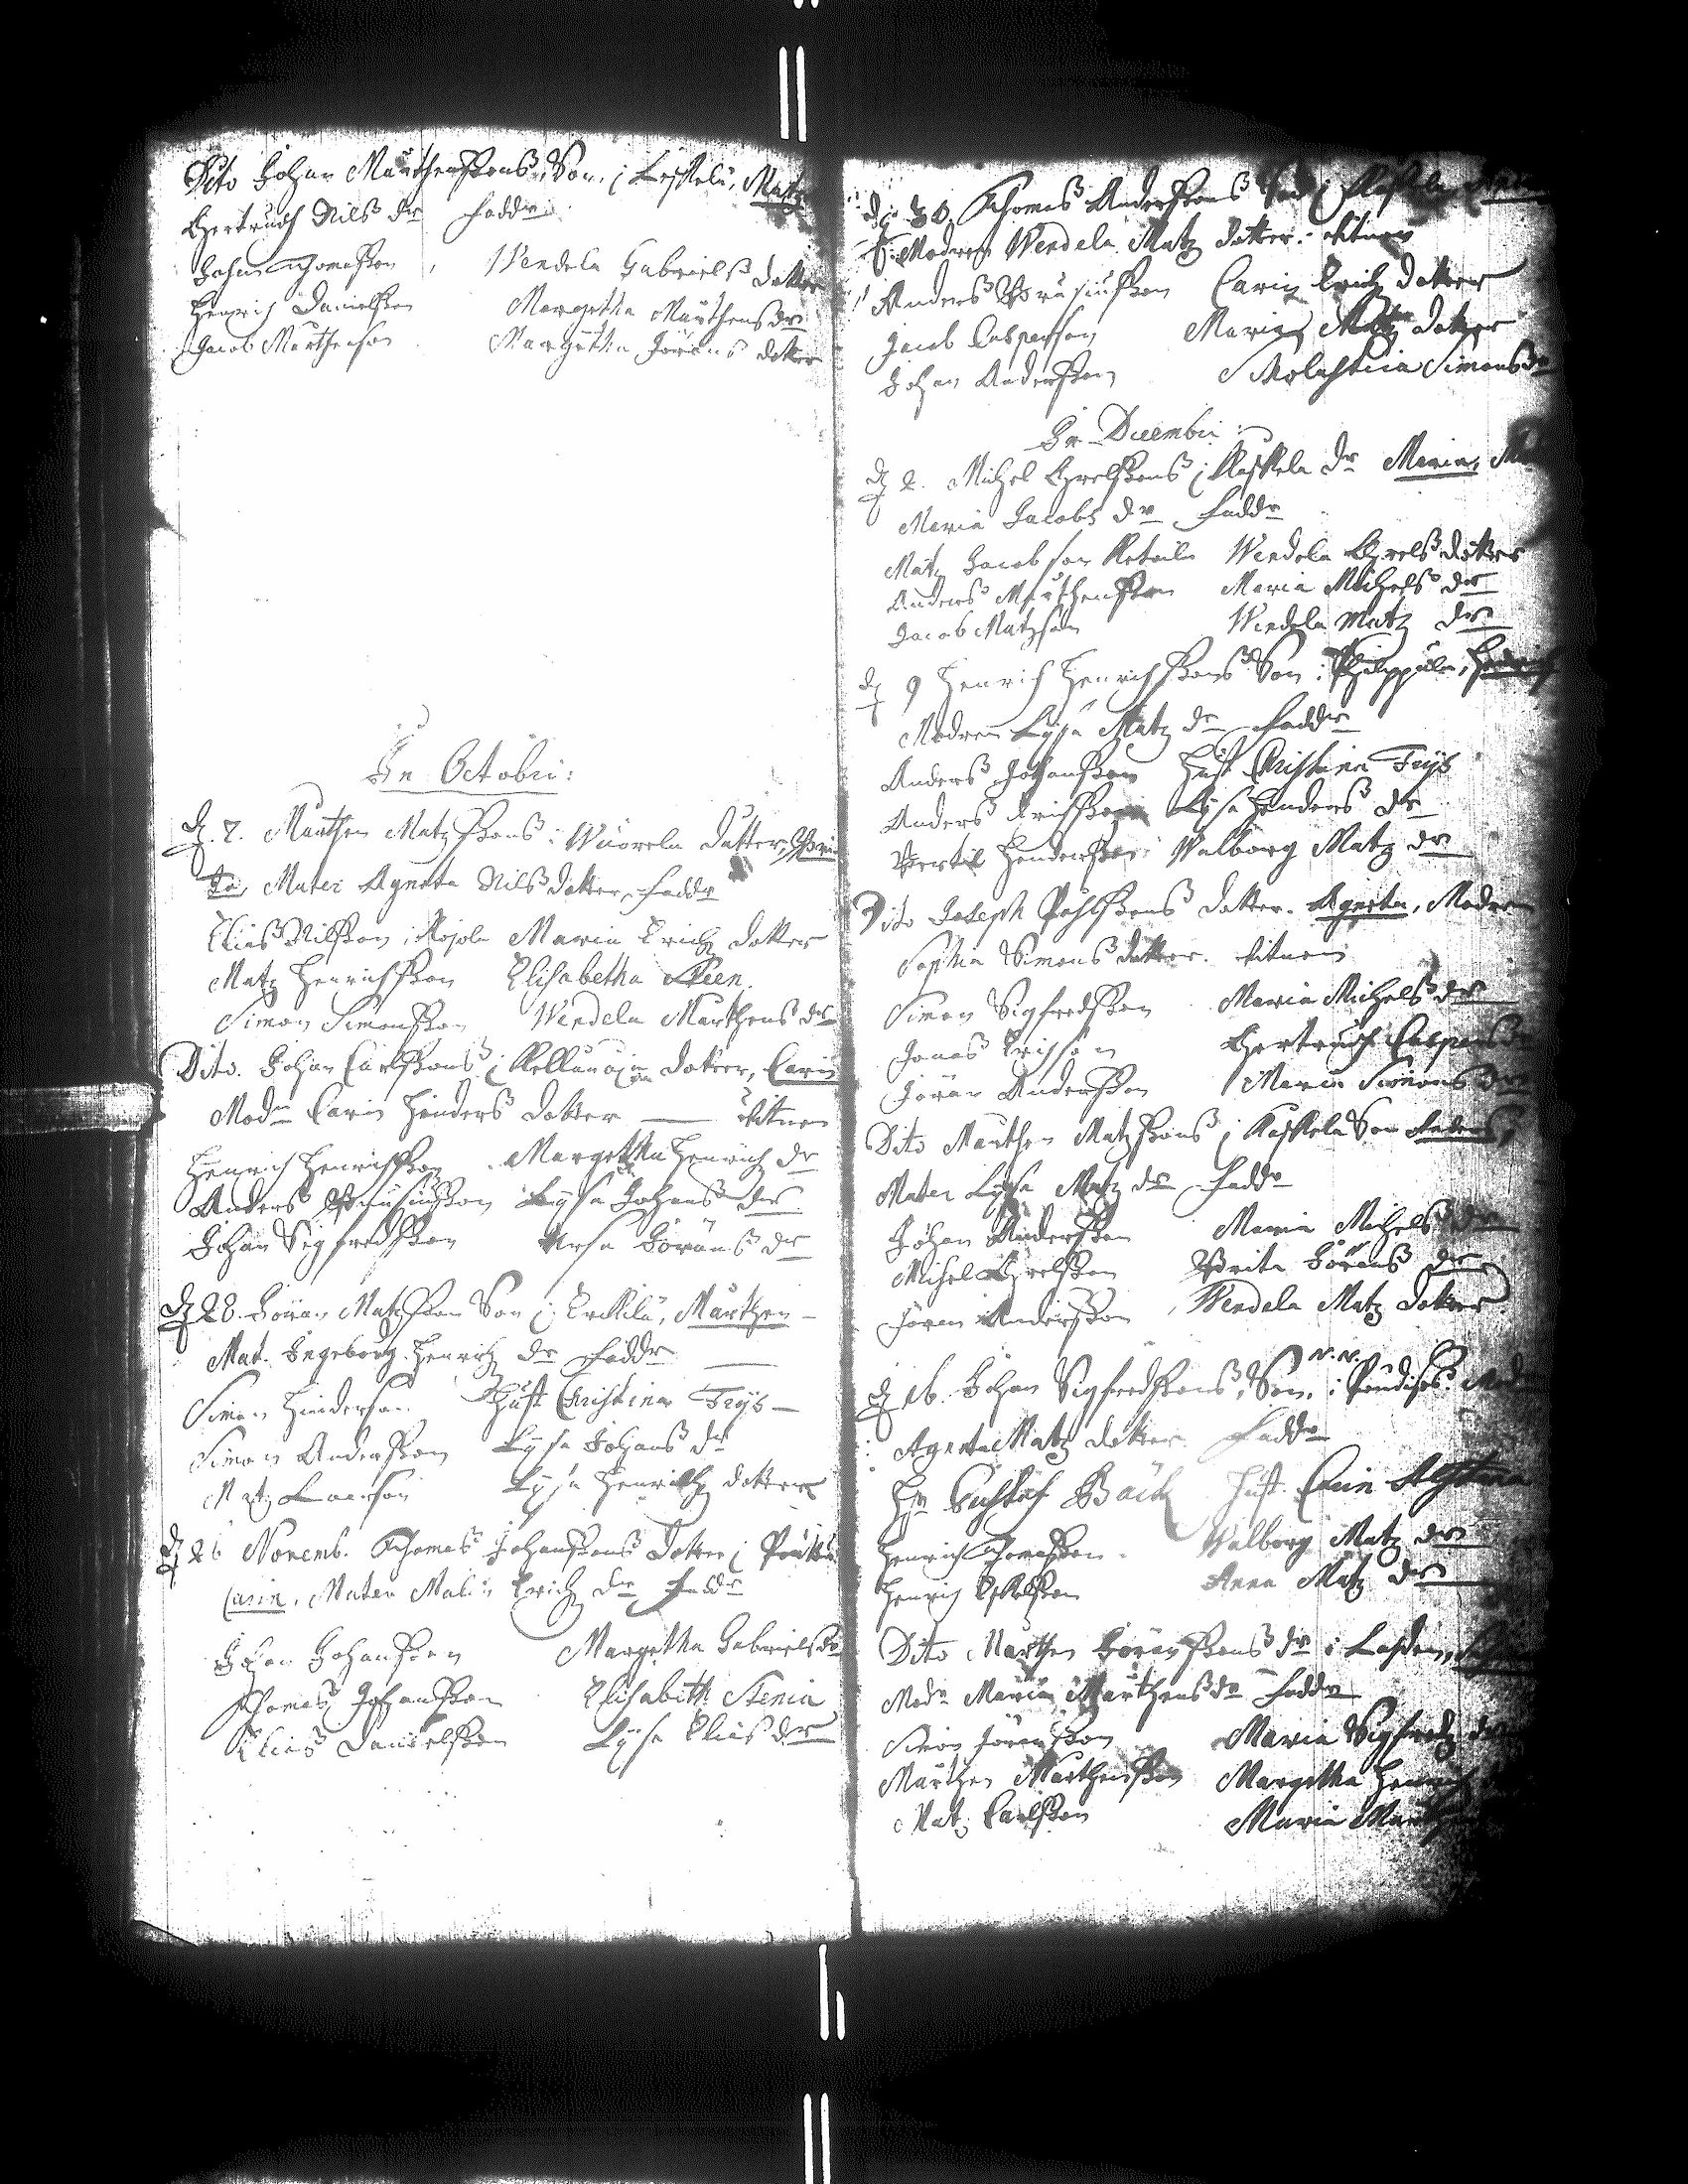 Dito Johan Mårthenssons Son, i Leistelä, Matz
Gertrudh Nils dr faddr
Johan Thomasson, Wendela Gabrielss dotter
Henrich Danielsson Margetha Mårthens dr
Jacob Mårthenson Margetha Jörans dotter
In Octobri:
d. 7. Mårthen Matzssons i Wuorela dotter, Chris
ta, Mater Agneta Nilss dotter, faddr
Elias Nilsson, i Rojola Maria Erichz dotter
Matz Henrichsson Elisabetha
Simon Simonsson Wendela Mårthens dr
Dito. Johan Carlssons i dotter, Carin
Modr Carin Hinders dotter — vitnen
Henrich Henrichsson Margetha Henrichz dr
Anders Brusiusson Lysa Johans dr
Johan Sigfredsson Ursa Jörans dr
d. 28. Jöran Matzssons Son i Erkkilä, Mårthen
Mat. Ingeborg Henrichz dr faddr
Simon Hinderson Hust Christina Frijs
Simon Andersson Lysa Johans dr
Matz Larson Lysa Henrichz dotter
d. 26 Novemb. Thomas Johanssons dotter i
Carin, Mater Malin Erichz dr faddr
Johan Johansson Margetha Gabriels dr
Thomas Johansson Elisabeth Stenia
Elias Danielsson Lysa Elias dr
d. 30. Thomas Anderssons i Kaskela
Modren Wendela Matz dotter. vitnen
Anders Brusiusson Carin Erichz dotter
Jacob Casperson Maria Matz dotter
Johan Andersson Skolastica Simons dr
In Decembri:
d. 2. Michel Grelssons i Kaskela dr Maria,
Maria Jacobs dr faddr
Matz Jacobson Wendela Grelss dotter
Anders Mårthensson Maria Michels dr
Jacob Matzson Wendela Matz dr
d. 9 Henrich Henrichssons Son i Philppula, Henrich
Modren Lysa Matz dr faddr
Anders Johansson Hust Christina Frijs
Anders Erichsson Lysa Henders dr
Bertil Hendersson Walborg Matz dr
Dito Joseph Påhlssons dotter. Agneta, Modren
Sophia Simons dotter. vitnen
Simon Sigfredsson Maria Michels dr
Jonas Ersson Gertrudh Caspers dr
Jöran Andersson Maria Simons dr
Dito Mårthen Matzssons i Kaskela Son Anders,
Mater Lysa Matz dr faddr
Johan Andersson Maria Michels dr
Michel Grelsson Brita Jörens dr
Jören Andersson Wendela Matz dotter
d. 16. Johan Sigfredssons, Son, N. N. i
Agneta Matz dotter faddr
Hr Gustaf Bäck Hust. Carin
Henrich Thomasson Walborg Matz dr
Henrich Eskelsson Anna Matz dr
Dito Mårthen Jöranssons dr i
Modr Maria Mårthens dr faddr
Simon Jöransson Maria Sigfredz dr
Mårthen Mårthensson Margetha Henrichz
Matz Carlsson Maria Mårthens